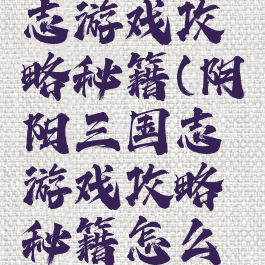 志游戏攻
略秘籍(阴
阳三国志
游戏攻略
秘籍怎么